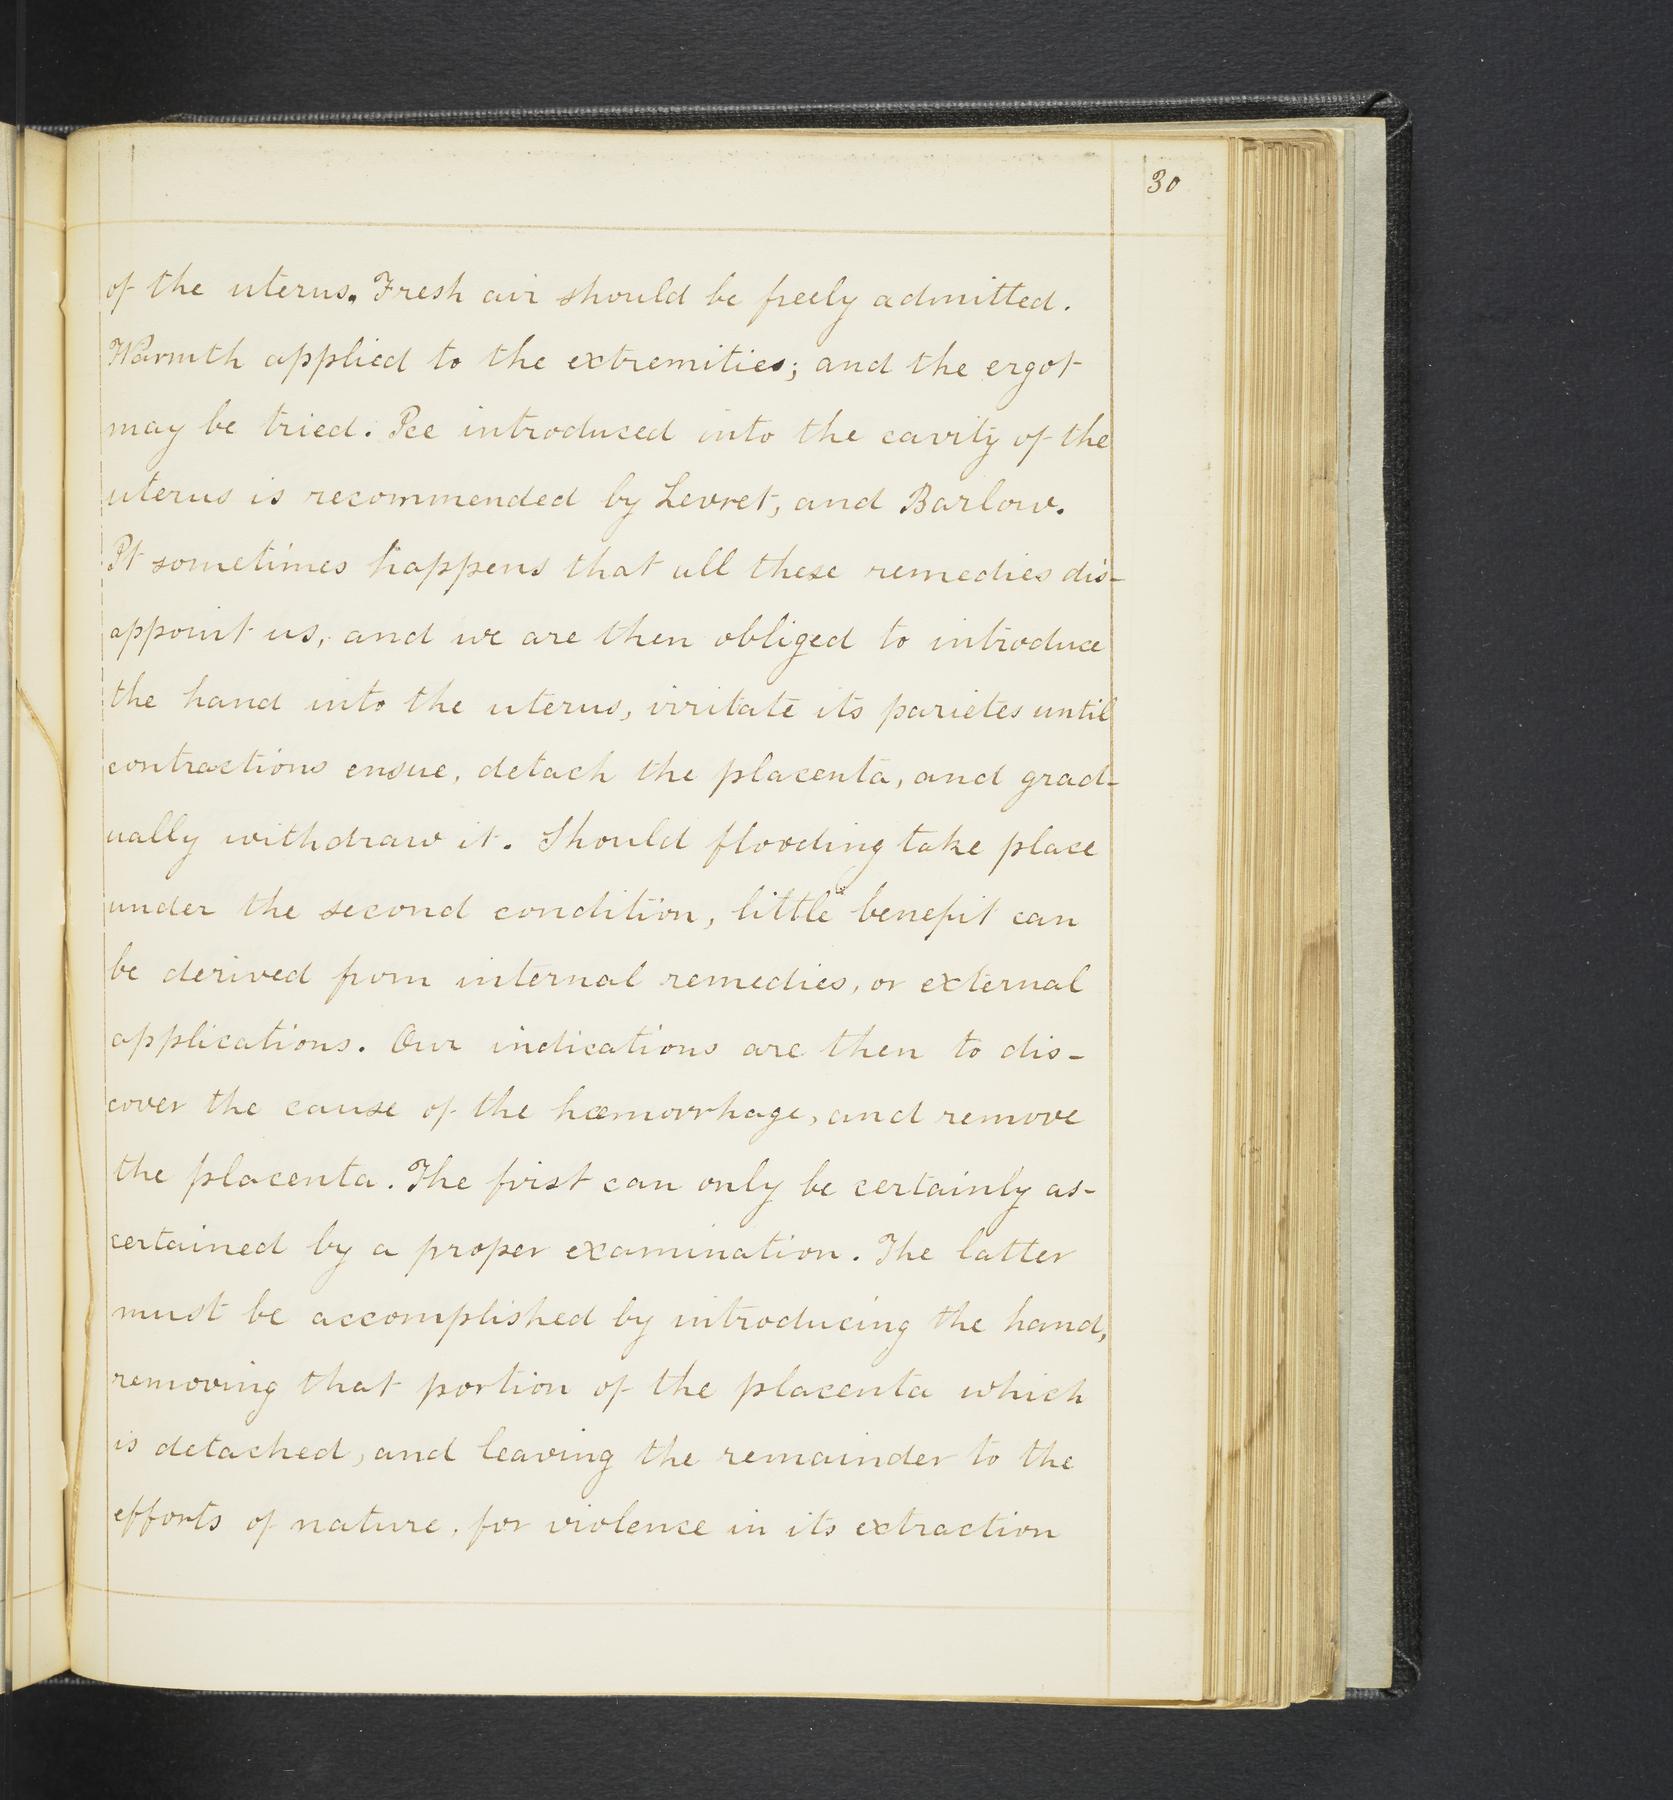 30
of the uterus. Fresh air should be freely admitted.
Warmth applied to the extremities; and the ergot
may be tried. Ice introduced into the cavity of the
uterus is recommended by Levret, and Barlow.
It sometimes happens that all these remedies dis-
appoint us, and we are then obliged to introduce
the hand into the uterus, irritate its parietes until
contractions ensue, detach the placenta, and grad-
ually withdraw it. Should flooding take place
under the second condition, little benefit can
be derived from internal remedies, or external
applications. Our indications are then to dis-
cover the cause of the hæmorrhage, and remove
the placenta. The first can only be certainly as-
certained by a proper examination. The latter
must be accomplished by introducing the hand,
removing that portion of the placenta which
is detached, and leaving the remainder to the
efforts of nature, for violence in its extraction